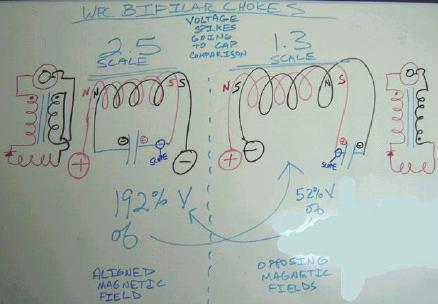 WFC BIFILAR CHOKES
VOLTAGE
SPIKES
GOING
TO CAP
COMPARISON
2.5
SCALE
1.3
SCALE
N N S S
N S N S
+ -
+ -
SCOPE
SCOPE
192% V
of
52% V
of
ALIGNED
MAGNETIC
FIELD
OPPOSING
MAGNETIC
FIELDS